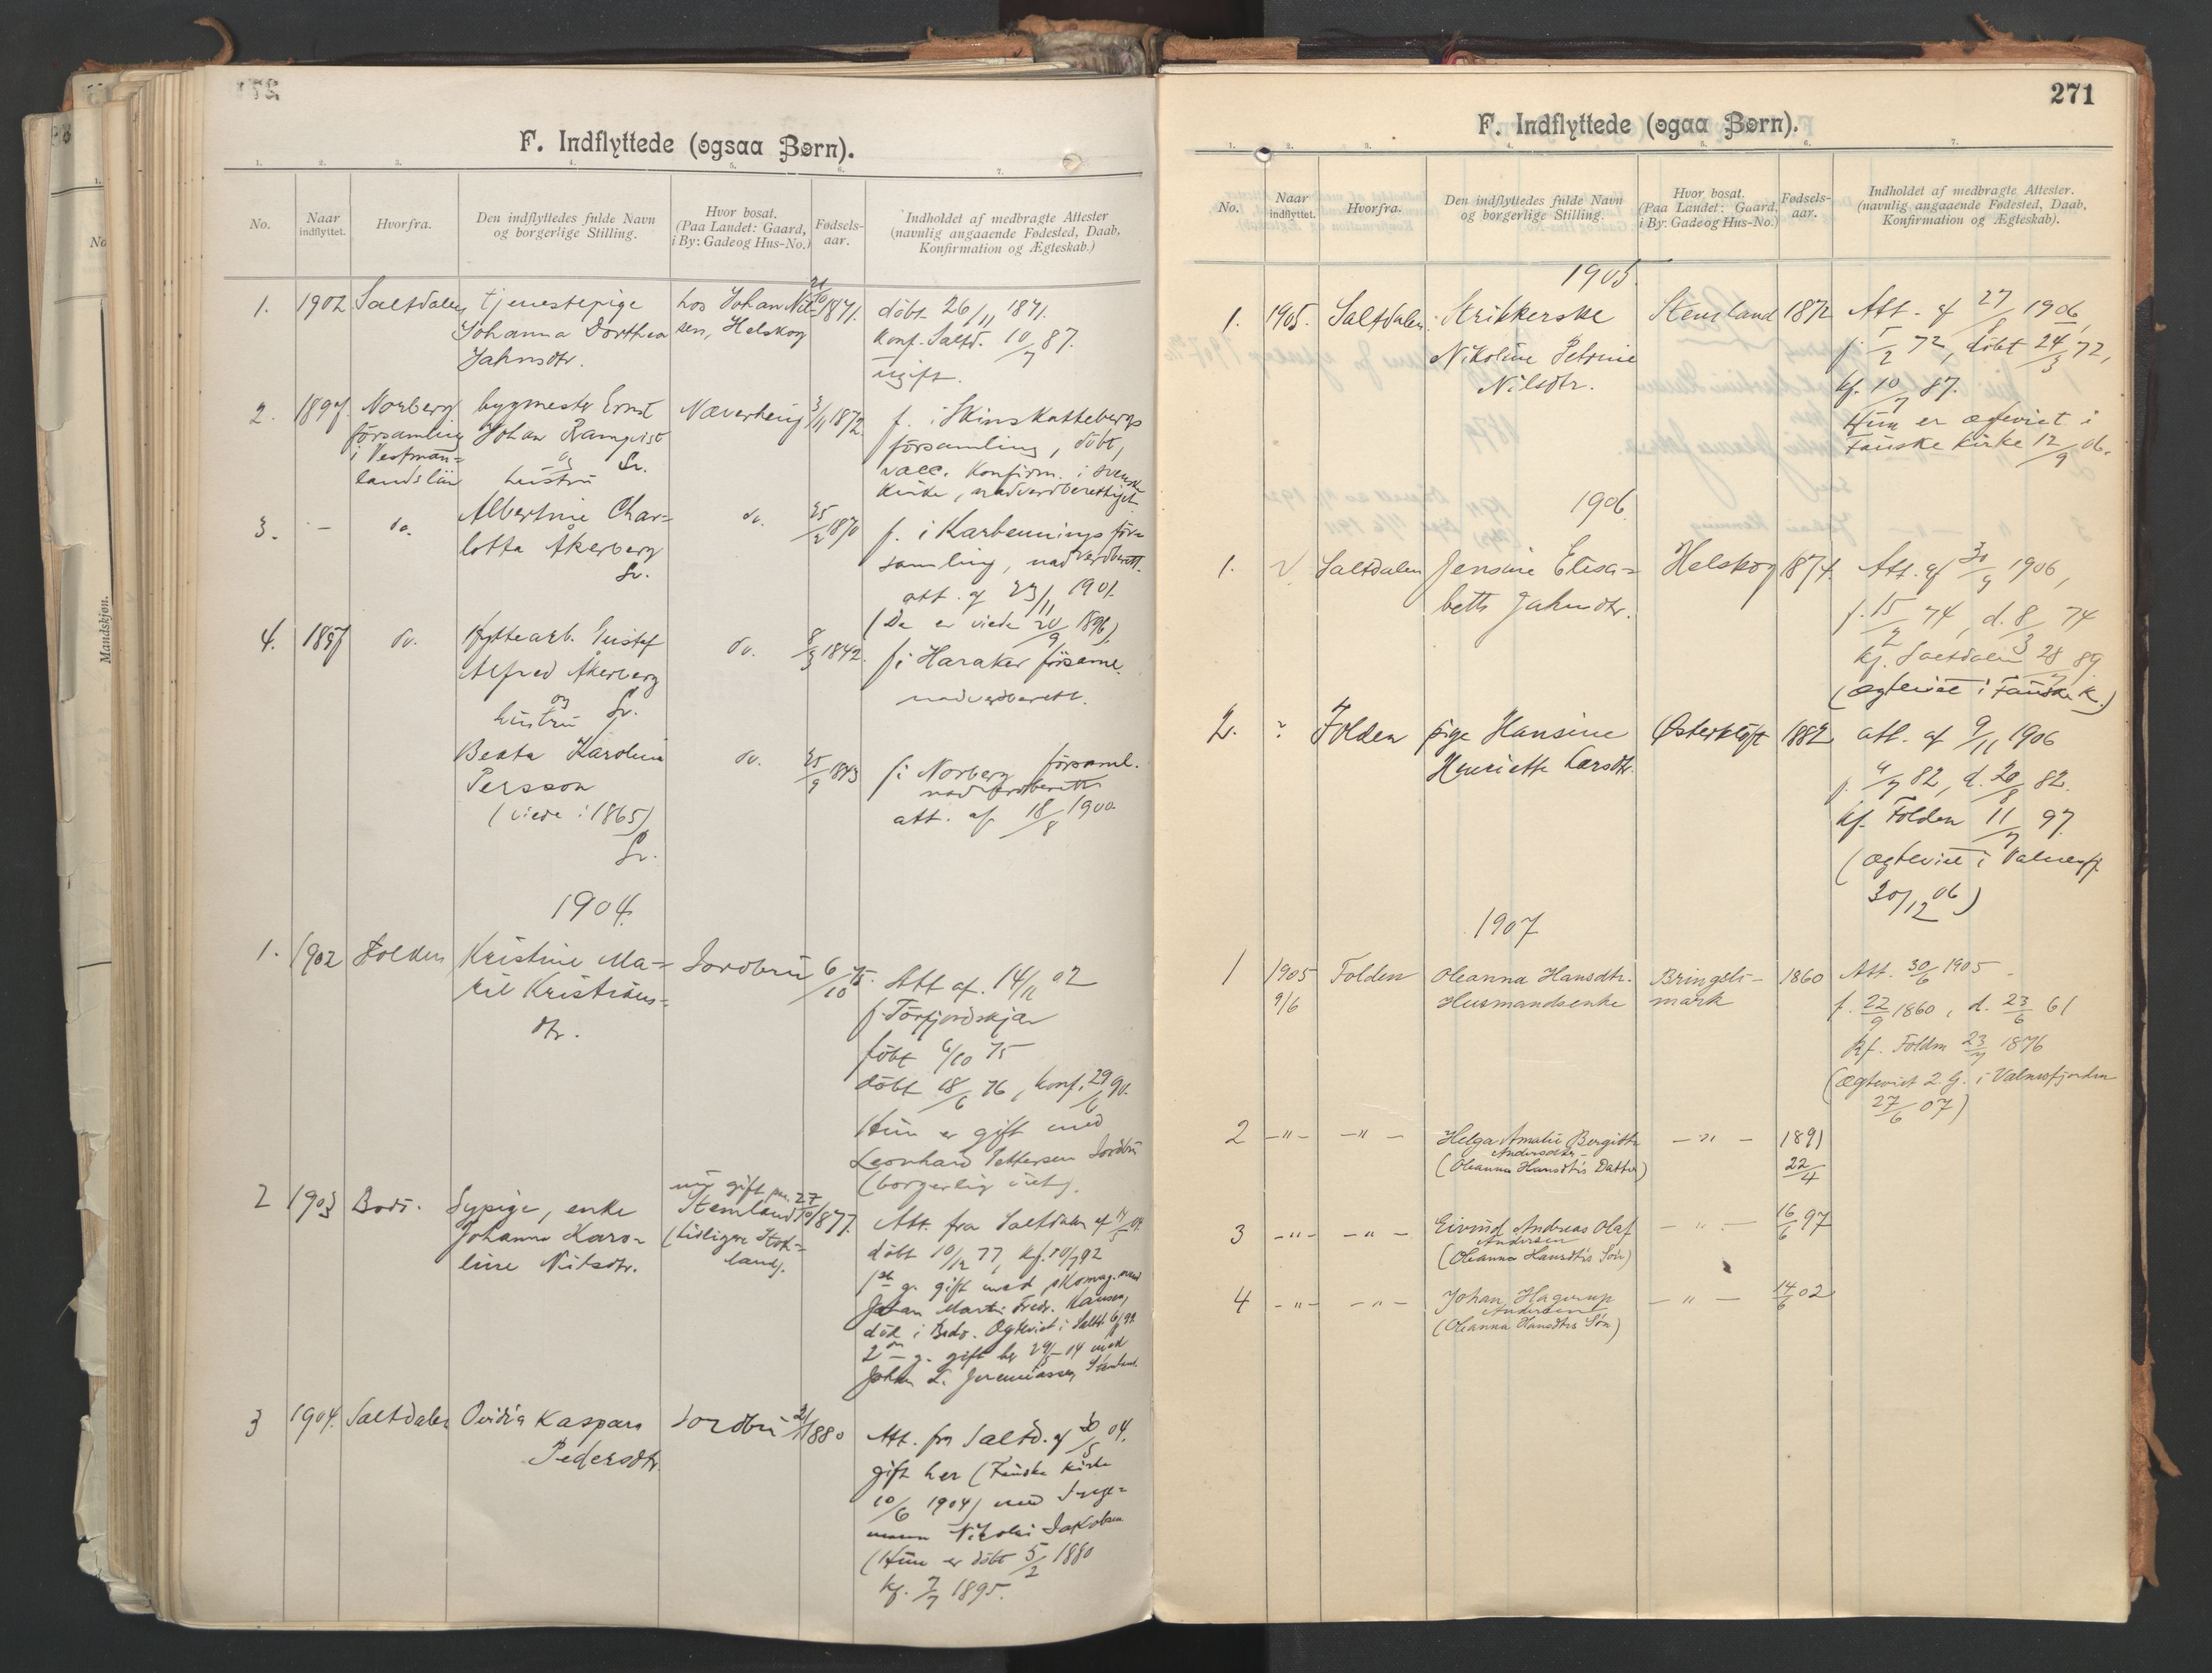 F. Indflyttede (ogsaa Børn).
1. 2. 3. 4. 5. 6. 7.
No. Naar indflyttet. Hvorfra. Den indflyttedes fulde Navn og borgerlige Stilling. Hvor bosat. (Paa Landet: Gaard, i By: Gade og Hus-No.) Fødsels-aar. Indholdet af medbragte Attester (navnlig angaaende Fødested, Daab, Konfirmation og Ægteskab.)
1. 1902 Saltdalen tjenestepige hos Johan Nil- 1871. döbt 26/11 1871.
Johanna Dorthea sen, Helskog konf. Saltd. 10/7 87.
Jahnsdtr. ugift.
2. 1897 Norberg bygmester Ernst Næverhaug 3/11 1872. f. i Skinskattebergs
församling Johan Ramqvist församling, döbt,
i Vestman- og Sv. vacc. Konfirm. i svenske
lands län hustru Kirke, nadverdberettiget
3. - do. Albertine Char- do. 25/2 1870 f. i Karbennings för-
lotta Åkerberg samling, nadverdberett.
Sv. att. af 23/11 1901.
(De er viede 20/9 1896)
4. 1897 do. Hyttearb. Gustaf do. 8/3 1842. f i Haraker församl.
Alfred Åkerberg nadverdberett.
og Sv.
hustru
Beata Karolina do. 25/9 1843 f i Norberg församl.
Persson nadverdberett.
(viede i 1865) att. af 18/8 1900
Sv.
1904.
1. 1902 Folden Kristine Ma- Jordbru 6/10 75. Att af. 14/11 02
rie Kristians- f. Törfjordskjær
dtr. födt 6/10 75
döbt 18/6 76, konf. 29/6 90.
Hun er gift med
Leonhard Pettersen Jordbru
(borgerlig viet).
2 1903 Bodö. Sypige, enke nu gift paa Stemland 27/10 1877. Att. fra Saltdalen af
Johanna Karo- (tidligere Stok- döbt 10/12 77, kf. 10/7 92
line Nilsdtr. land). 1ste g. gift med skomag.
Johan Martin Fredr. Hansen,
död i Bodö. Ægteviet i Saltd.
2den g. gift her 29/5 - 04 med
Johan L. Jeremiassen, Stemland.
3 1904. Saltdalen Ovidia Kaspara Jordbru 1880 Att. fra Saltd. af 30/5 04.
Pedersdtr. gift her (Fauske kirke
10/6 1904) med Unge-
mann Nikolai Jakobsen
(Hun er döbt 5/2 1880
kf. 7/7 1895.
271
F. Indflyttede (ogaa Børn).
1. 2. 3. 4. 5. 6. 7.
No. Naar indflyttet. Hvorfra. Den indflyttedes fulde Navn og borgerlige Stilling. Hvor bosat. (Paa Landet: Gaard, i By: Gade og Hus-No.) Fødsels-aar. Indholdet af medbragte Attester. (navnlig angaaende Fødested, Daab, Konfirmation og Ægteskab).
1905.
1. 1905. Saltdalen Strikkerske Stemland 1872 Att. af 27/8 1906,
Nikoline Petrine f. 5/2 72, döbt 24/3 72,
Nilsdtr. kf. 10/7 87.
Hun er ægteviet i
Fauske Kirke 12/9 06.
1906.
1. Saltdalen Jensine Elisa- Helskog 1874. Att. af 30/9 1906,
beth Jahnsdtr. f. 15/2 74, d. 8/3 74
kf. Saltdalen 28/7 89.
(Ægteviet i Fauske K.)
2. ? Folden pige Hansine Østerkløft 1882 att. af 9/11 1906
Henriette Larsdtr. f. 4/7 82, d. 20/8 82.
kf. Folden 11/7 97.
(Ægteviet i Valnesfj.
30/12 06)
1907
1 1905 Folden Oleanna Hansdtr. Bringsli- 1860 Att. 30/6 1905 -
9/6 Husmandsenke mark f. 22/9 1860, d. 23/6 61
kf. Folden 23/7 1876
(Ægteviet 2. G. i Valnesfjorden
27/6 07)
2 -"- -"- Helga Amalie Bergitte -"- 1891
Andersdtr. 22/4
(Oleanna Hansdtrs Datter)
3 -"- -"- Eivind Andreas Olaf -"- 16/6 97
Andersen
(Oleanna Hansdtrs Sön)
4 -"- -"- Johan Hagerup -"- 14/6 02
Andersen
(Oleanna Hansdtrs Sön)
Mandskjøn.